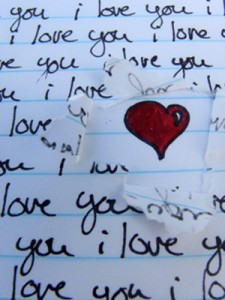 you i love you i
i love you i love
love you i love you
i love i l
love
u i
i love you
you i love y
love you i lo